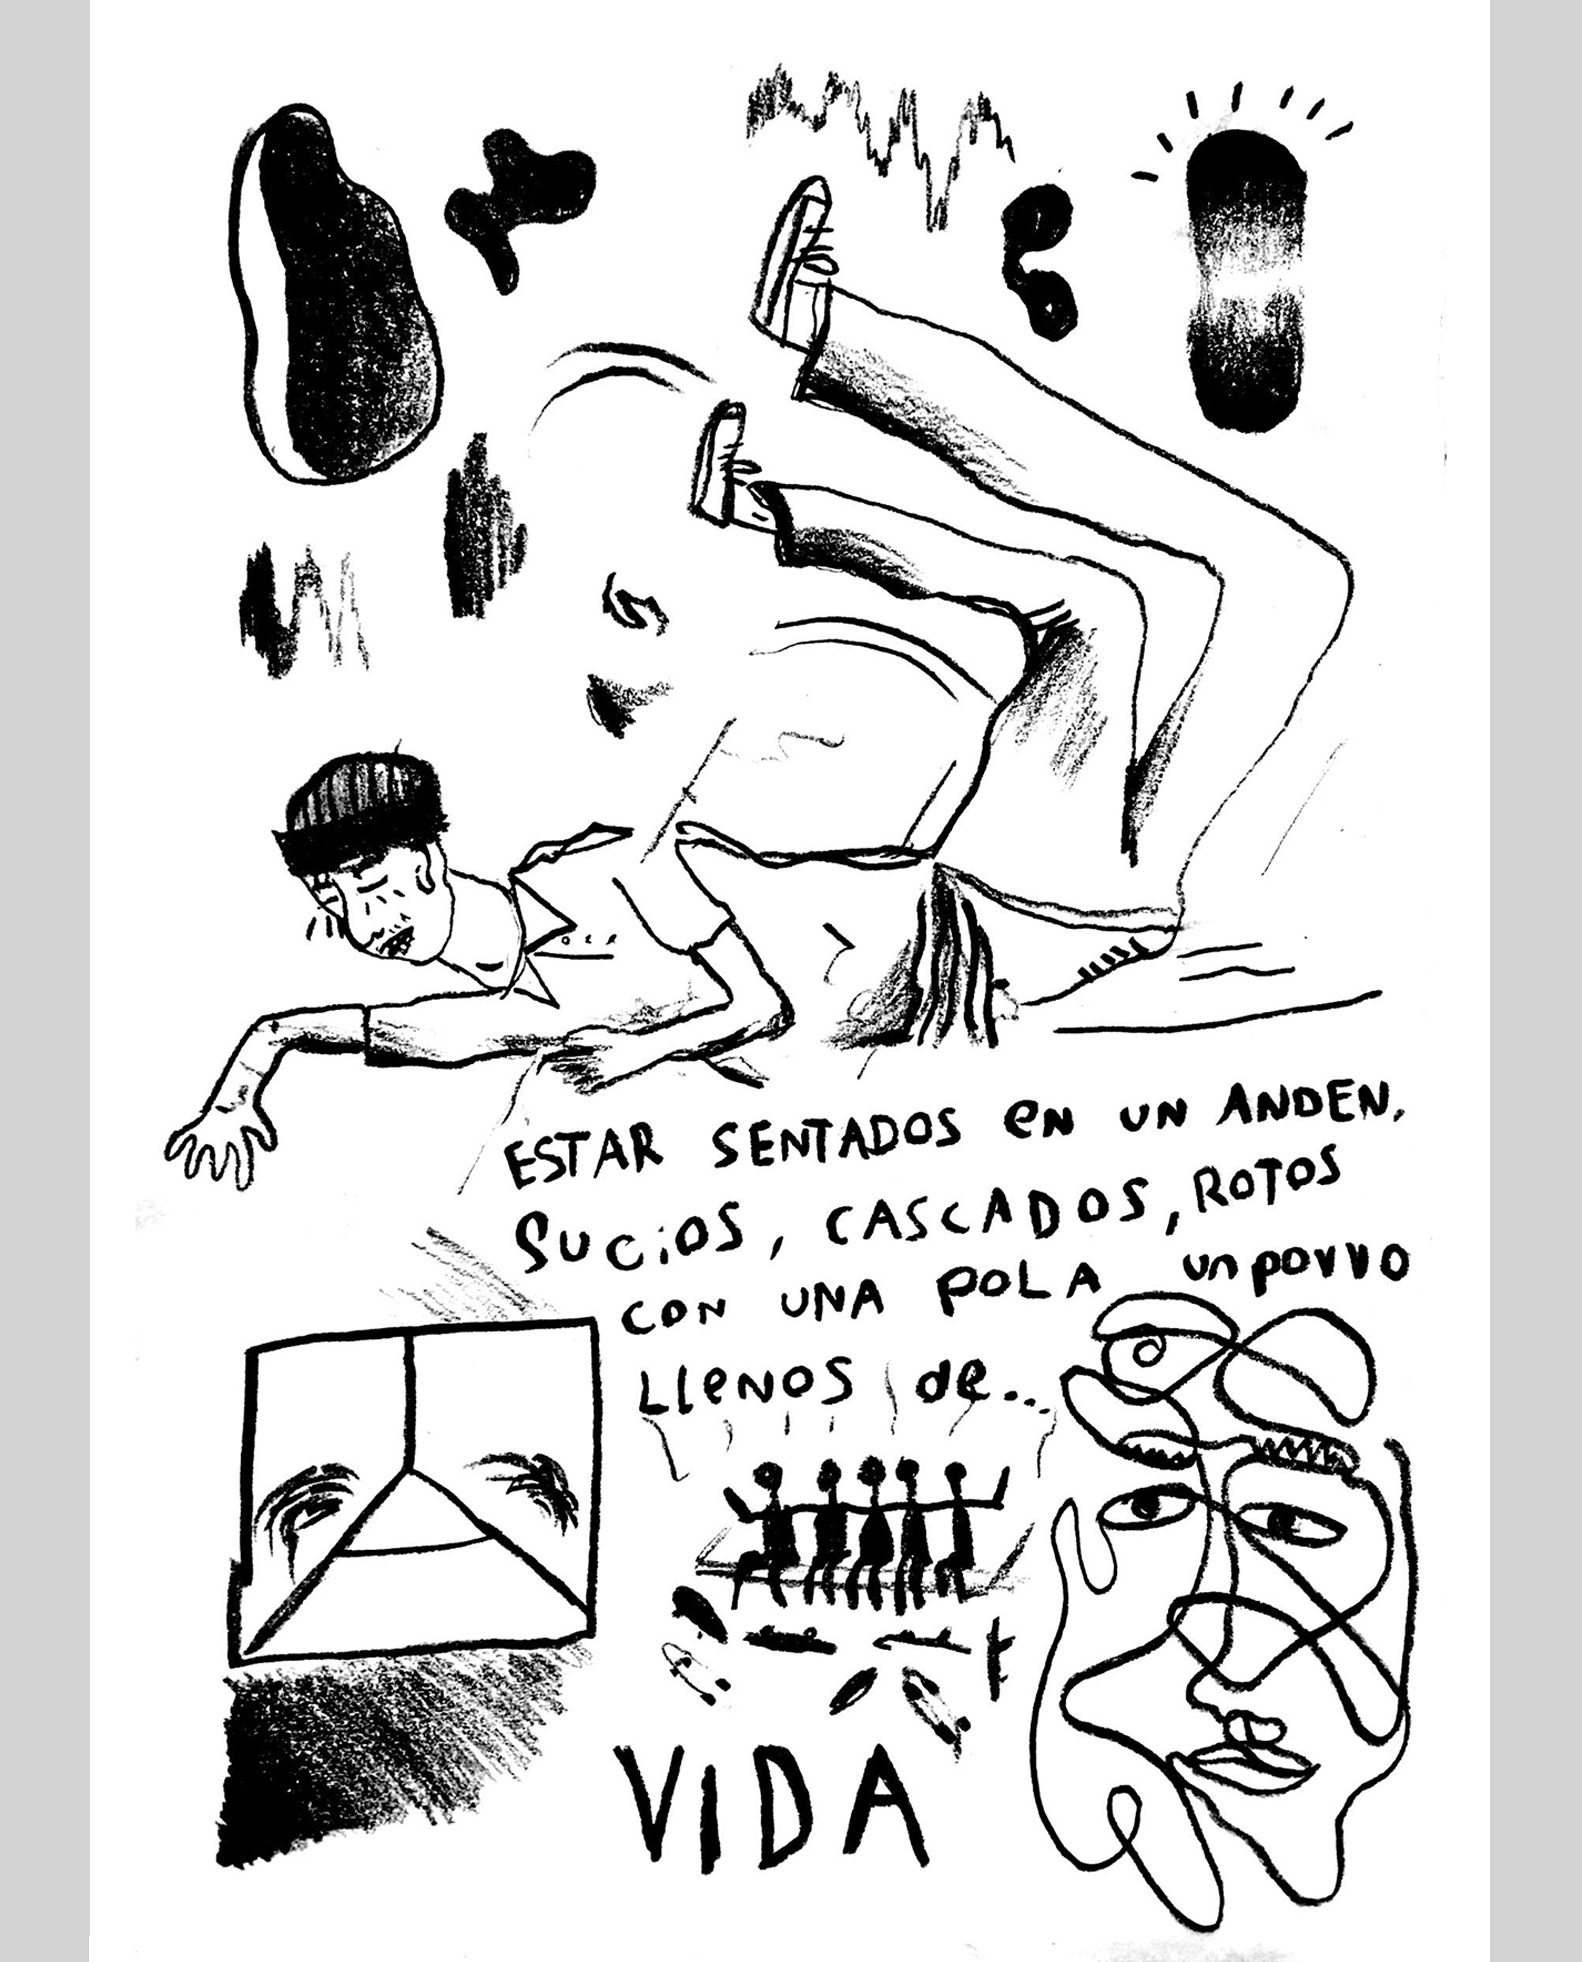 ESTAR SENTADOS eN UN ANDEN,
SUCiOS, CASCADOS, ROTOS
CON UNA POLA un porro
LLeNOS de...
ViDA